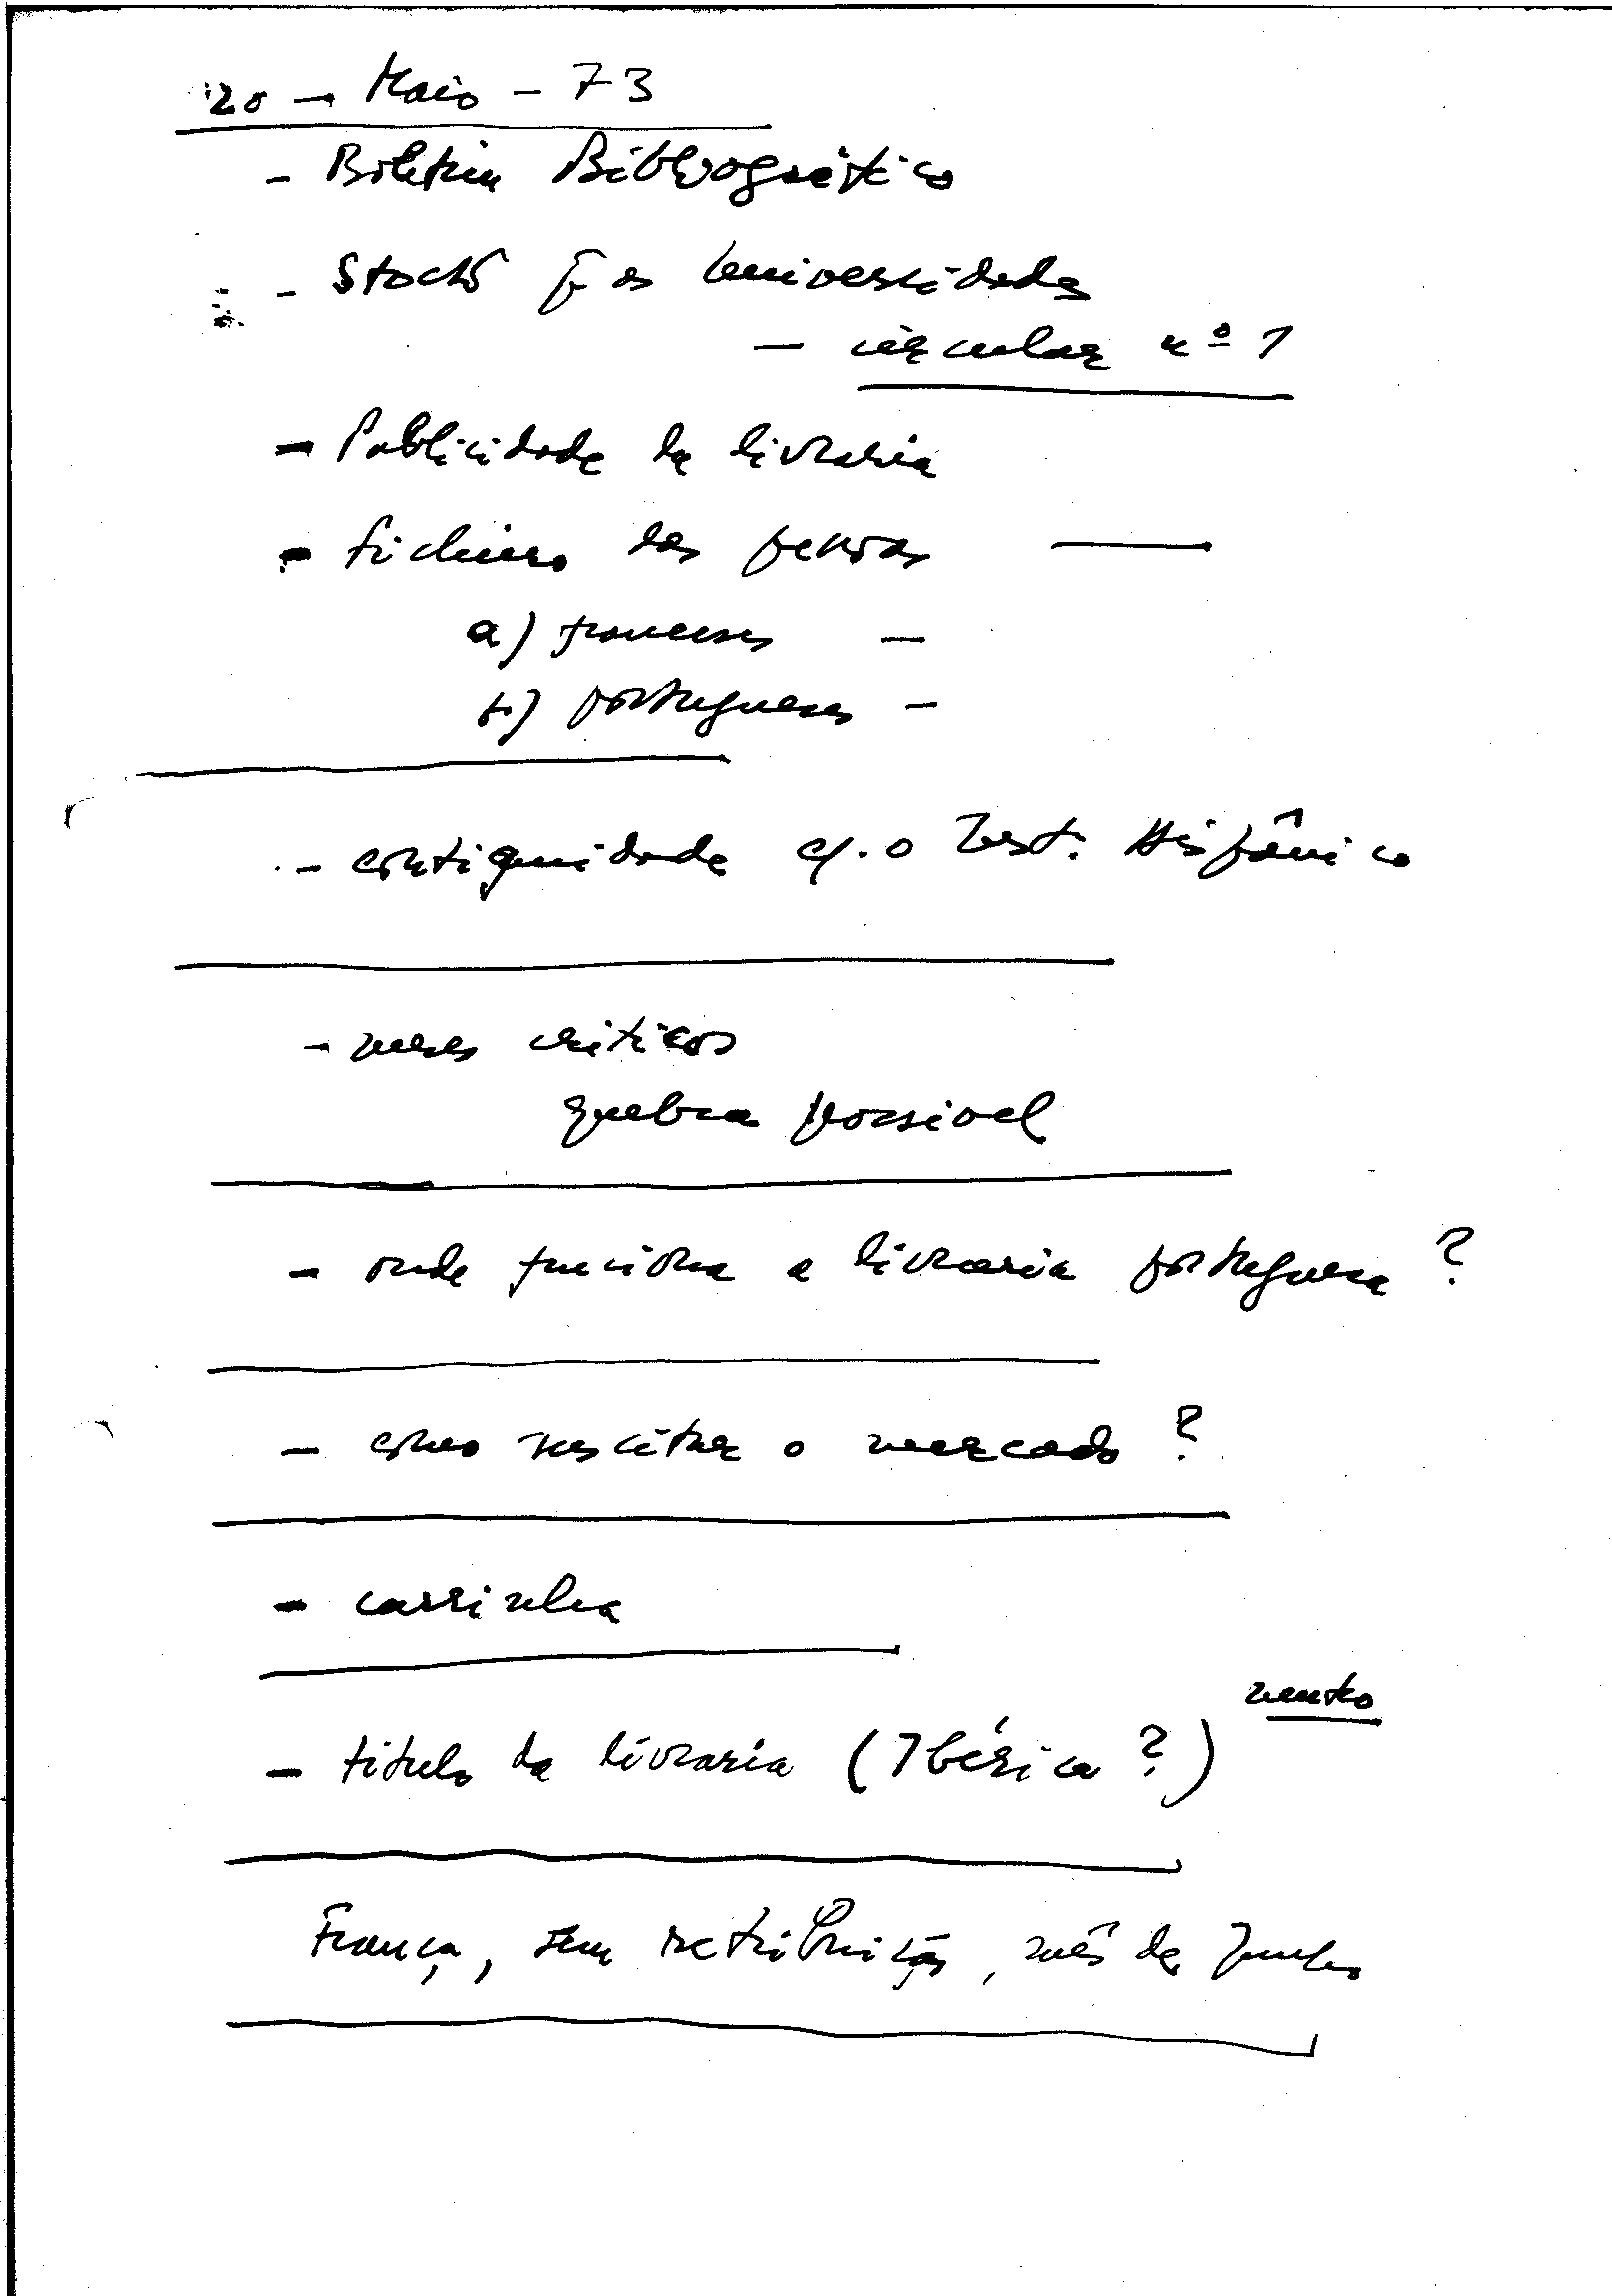 20 - Maio - 73
- Boletim Bibliográfico
- Stock p. as Universidades
- circular nº 1
- Publicidade da livraria
- ficheiro das pessoas —
a) franceses -
b) portugueses -
- contiguidade c/. o Inst. Hispânico
- meses criticos
quebra possivel
- onde funciona a livraria portuguesa ?
- como suscitar o mercado ?
- carrinha
neutro
- titulo da livraria (Ibérica ?)
França, sem retribuição, mês de Junho